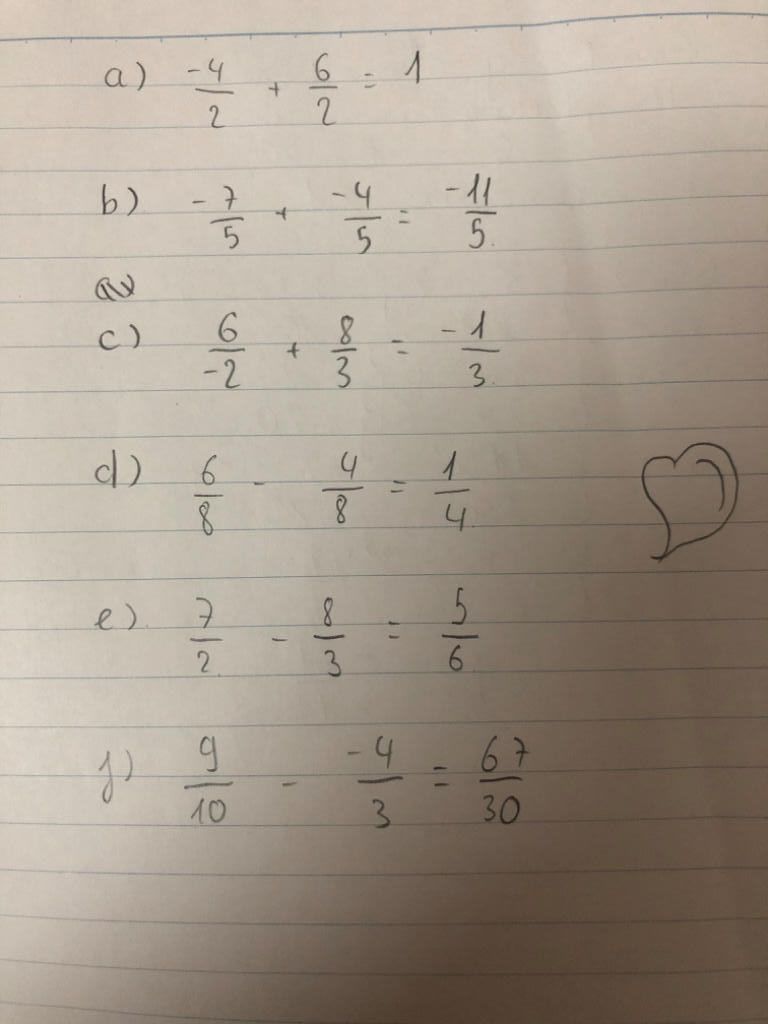 a) -4/2 + 6/2 = 1
b) -7/5 + -4/5 = -11/5
c) 6/-2 + 8/3 = -1/3
d) 6/8 - 4/8 = 1/4
e) 7/2 - 8/3 = 5/6
f) 9/10 - -4/3 = 67/30